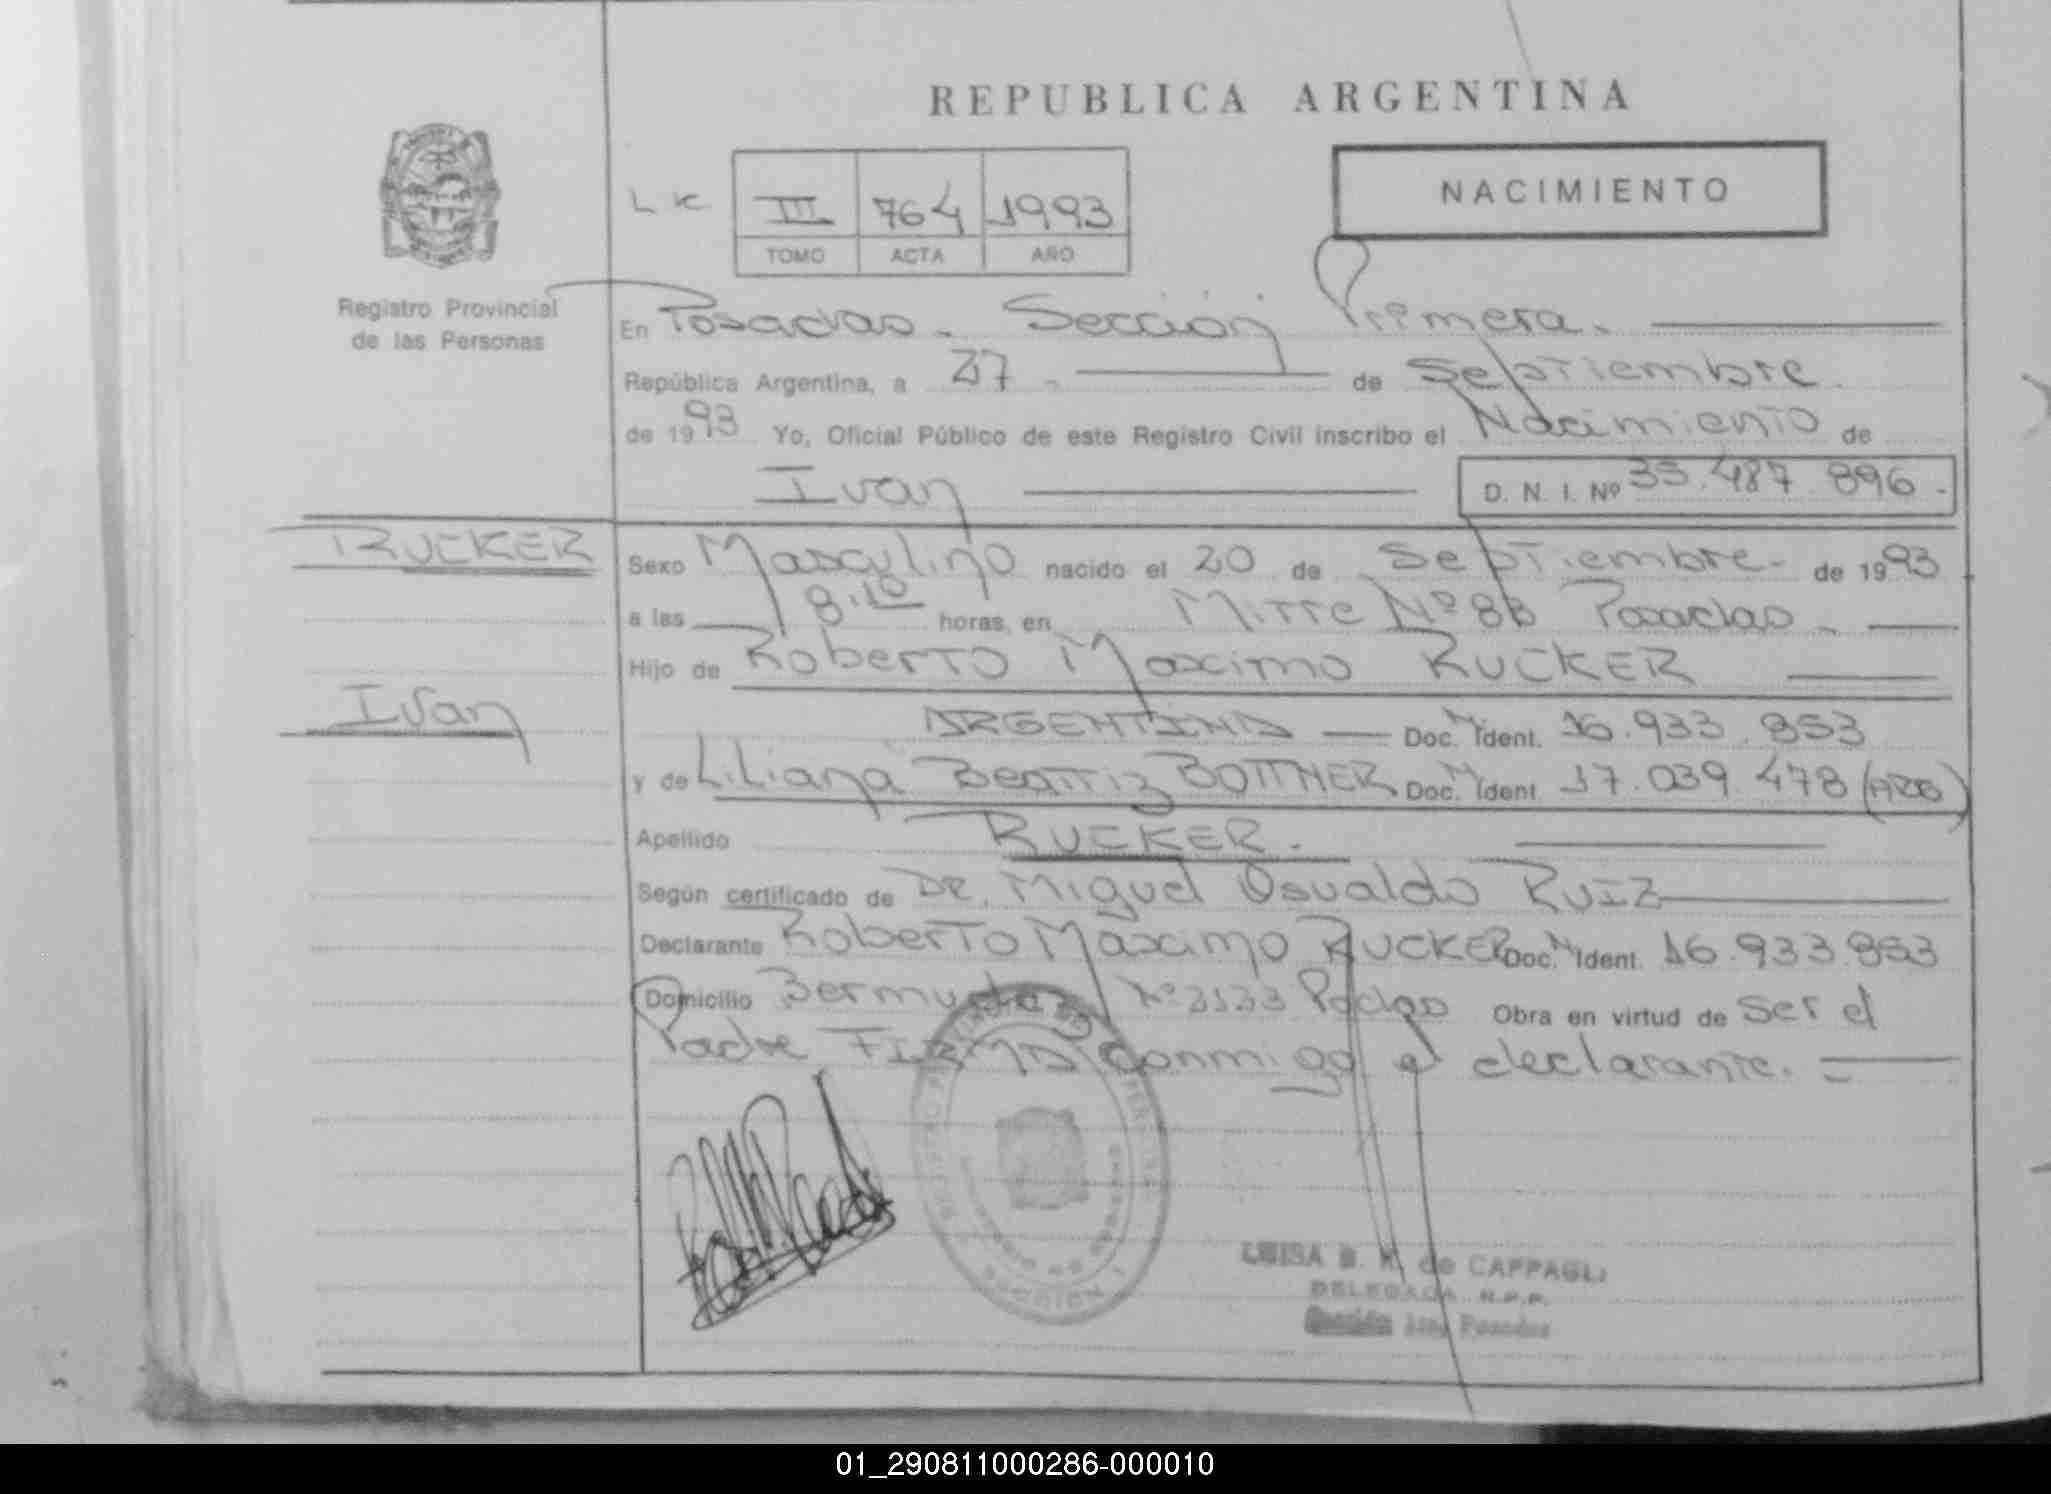 REPUBLICA ARGENTINA
NACIMIENTO
L K III 764 1993
TOMO ACTA AÑO
Registro Provincial
de las Personas
En Posadas. Sección Primera.
República Argentina, a 27 de Septiembre
de 1993 Yo, Oficial Público de este Registro Civil inscribo el Nacimiento de
Ivan D. N. I. Nº 35.487.896.
RUCKER
Sexo Masculino nacido el 20 de Septiembre de 1993
a las 8.10 horas, en Mitre Nº 88 Posadas
Hijo de Roberto Maximo RUCKER
Ivan
ARGENTINA Doc. M Ident. 16.933.853
y de Liliana Beatriz BOTTNER Doc. M Ident. 17.039.478 (ARG)
Apellido RUCKER.
Según certificado de DR. Miguel Osvaldo RUIZ
Declarante Roberto Maximo RUCKER Doc. M Ident. 16.933.853
Domicilio Bermudez Nº 3133 Pdas Obra en virtud de ser el
Padre FIRMA conmigo el declarante.
SECCION 1
LUISA B. K. de CAPPAGLI
DELEGADA R.P.P.
Sección 1ra Posadas
01_290811000286-000010